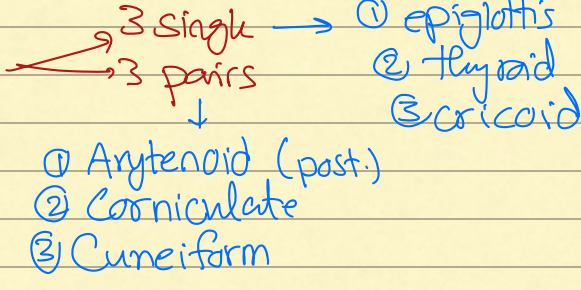 3 single → ① epiglottis
② thyroid
3 pairs
③ cricoid
↓
① Arytenoid (post.)
② Corniculate
③ Cuneiform